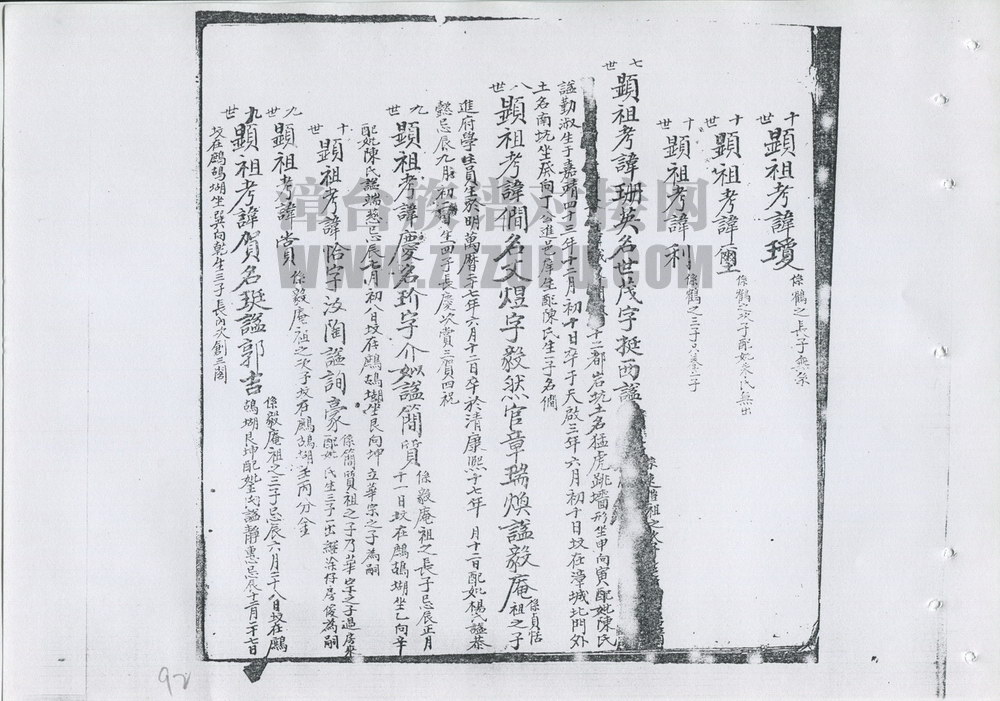 十世
顯祖考諱瓊 係鸖之長子無柒
十世
顯祖考諱璽 係鸖之次子配妣 氏無出
十世
顯祖考諱利 係鸖之三子
七世
顯祖考諱珊英名世茂字挺西謚
十二都岩坑土名猛虎跳墻形坐甲向寅配妣陳氏
謚勤淑生于嘉靖四十三年十二月初十日卒于天啟三年六月初十日坟在漳城北門外
土名南坑坐癸向丁公進邑庠生配陳氏生一子名僩
八世
顯祖考諱僩名文煜字毅然官章瑞煥謚毅庵 係貞恬祖之子
進府學生員生於明萬曆二十七年六月十二日卒於清康熙十七年 月十二日配妣楊氏謚恭
懿忌辰九月初 日生四子長慶次賞三賀四祝
九世
顯祖考諱慶名玠字介如謚簡質 係毅庵祖之長子忌辰正月十一日坟在鷓鴣湖坐乙向辛
配妣陳氏謚端慈忌辰七月初八日坟在鷓鴣湖坐艮向坤 立華宗之子為嗣
十世
顯祖考諱恰字汝陶謚詢豪 係簡質祖之子乃華宗之子過房 配妣 氏生三子一出 為嗣
九世
顯祖考諱賞 係毅庵祖之次子坟在鷓鴣湖壬丙分金
九世
顯祖考諱賀名珽謚郭吉 係毅庵祖之三子忌辰六月二十八日坟在鷓鴣湖艮坤配 氏謚靜惠忌辰十二月二十七日
坟在鷓鴣湖坐巽向乾生三子長丙次創三閣
章台族谱对接网
WWW.ZTZUPU.COM
92